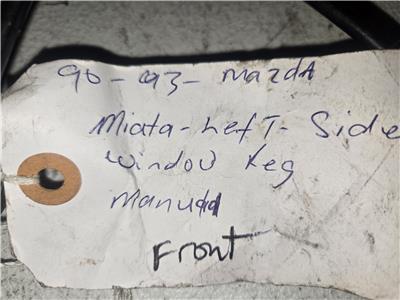 90-93- mazdA
Miata-LefT-Side
window Reg
manual
Front